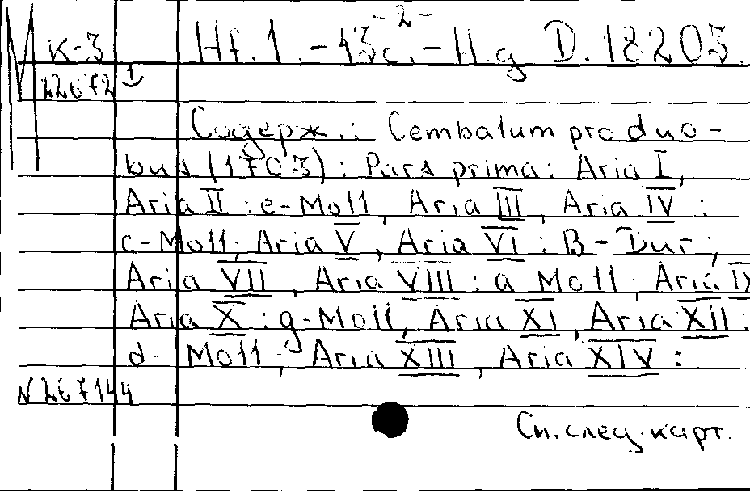 -2-
М К-3 Hf. 1. -43c. -11.g D. 18203.
22672
Содерж.: Cembalum pro duo-
bus (1703): Pars prima: Aria I,
Aria II: e-Moll, Aria III, Aria IV:
c-Moll; Aria V, Aria VI: B-Dur;
Aria VII, Aria VIII: a Moll; Aria IX
Aria X: g-Moll, Aria XI, Aria XII:
d-Moll; Aria XIII, Aria XIV:
N 267144
См. след. карт.